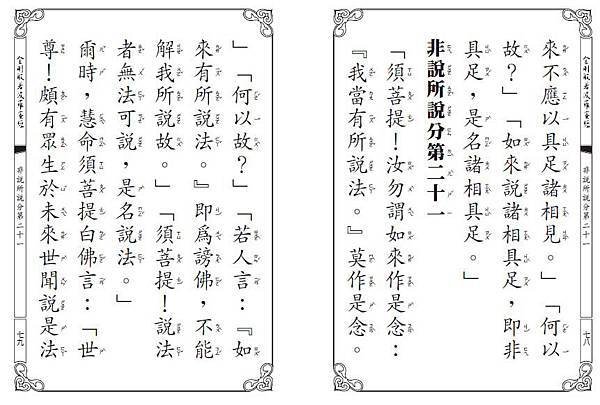 金剛般若波羅蜜經
非說所說分第二十一
七八
來不應以具足諸相見。」「何以
故?」「如來說諸相具足,即非
具足,是名諸相具足。」
非說所說分第二十一
「須菩提!汝勿謂如來作是念:
『我當有所說法。』莫作是念。
」「何以故?」「若人言:『如
來有所說法。』即爲謗佛,不能
解我所說故。」「須菩提!說法
者無法可說,是名說法。」
爾時,慧命須菩提白佛言:「世
尊!頗有眾生於未來世聞說是法
金剛般若波羅蜜經
非說所說分第二十一
七九